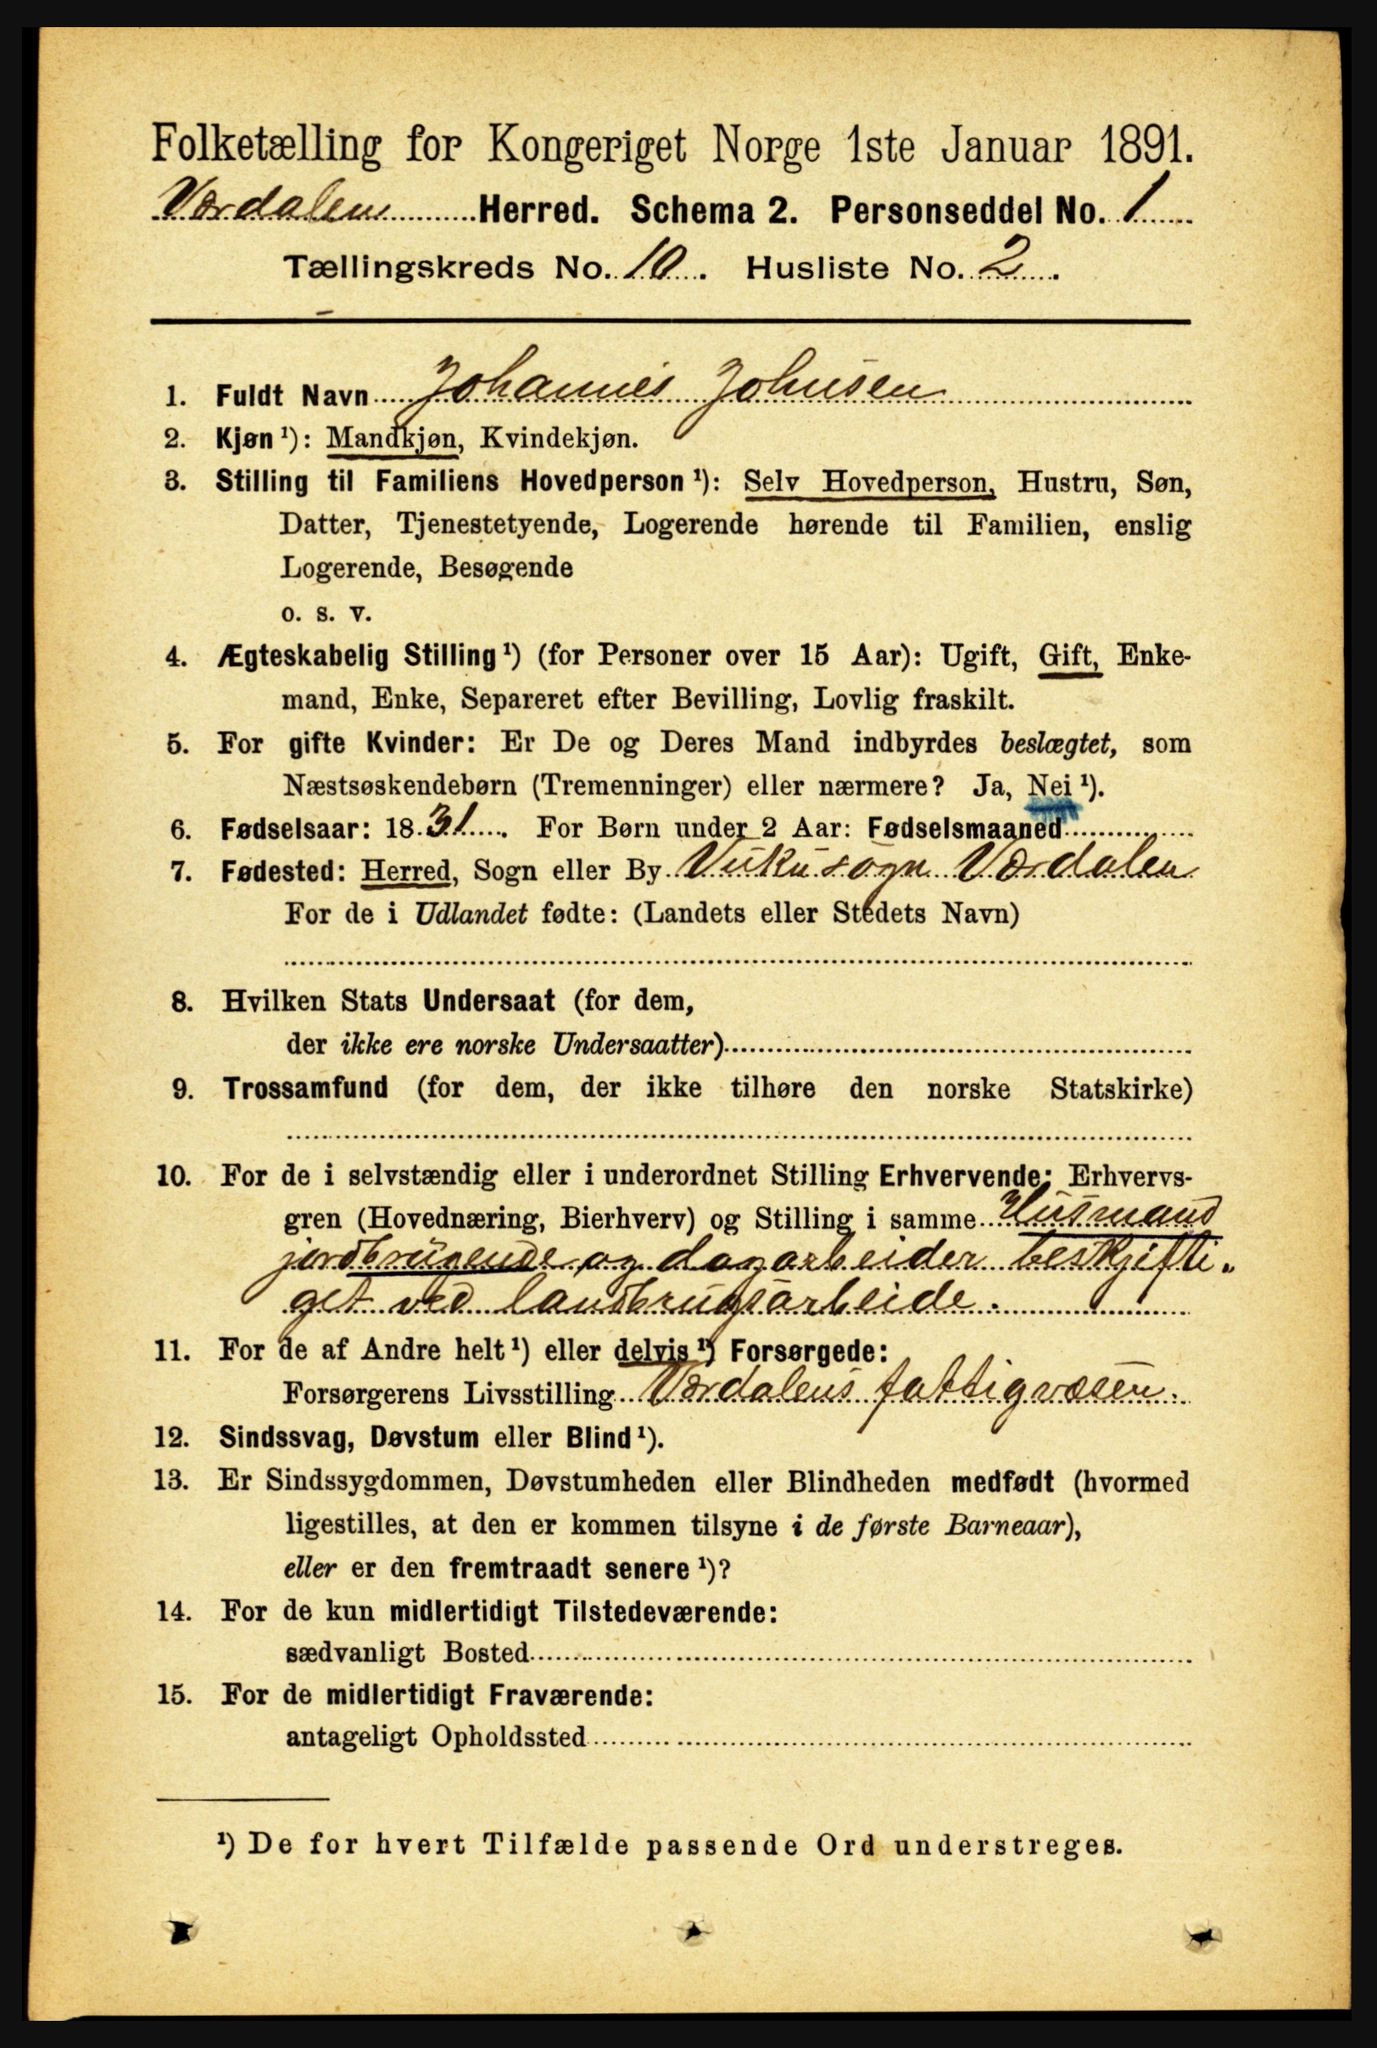 Folketælling for Kongeriget Norge 1ste Januar 1891.
Værdalen Herred. Schema 2. Personseddel No. 1
Tællingskreds No. 10. Husliste No. 2.
1. Fuldt Navn Johannes Johnsen
2. Kjøn ¹): Mandkjøn, Kvindekjøn.
3. Stilling til Familiens Hovedperson ¹): Selv Hovedperson, Hustru, Søn,
Datter, Tjenestetyende, Logerende hørende til Familien, enslig
Logerende, Besøgende
o. s. v.
4. Ægteskabelig Stilling ¹) (for Personer over 15 Aar): Ugift, Gift, Enke-
mand, Enke, Separeret efter Bevilling, Lovlig fraskilt.
5. For gifte Kvinder: Er De og Deres Mand indbyrdes beslægtet, som
Næstsøskendebørn (Tremenninger) eller nærmere? Ja, Nei ¹).
6. Fødselsaar: 1831. For Børn under 2 Aar: Fødselsmaaned
7. Fødested: Herred, Sogn eller By Vuku sogn Værdalen
For de i Udlandet fødte: (Landets eller Stedets Navn)
8. Hvilken Stats Undersaat (for dem,
der ikke ere norske Undersaatter)
9. Trossamfund (for dem, der ikke tilhøre den norske Statskirke)
10. For de i selvstændig eller i underordnet Stilling Erhvervende: Erhvervs-
gren (Hovednæring, Bierhverv) og Stilling i samme Husmand
jordbrugende og dagarbeider beskjefti-
get ved landbrugsarbeide.
11. For de af Andre helt ¹) eller delvis ¹) Forsørgede:
Forsørgerens Livsstilling Værdalens fattigvæsen.
12. Sindssvag, Døvstum eller Blind ¹).
13. Er Sindssygdommen, Døvstumheden eller Blindheden medfødt (hvormed
ligestilles, at den er kommen tilsyne i de første Barneaar),
eller er den fremtraadt senere ¹)?
14. For de kun midlertidigt Tilstedeværende:
sædvanligt Bosted
15. For de midlertidigt Fraværende:
antageligt Opholdssted
¹) De for hvert Tilfælde passende Ord understreges.